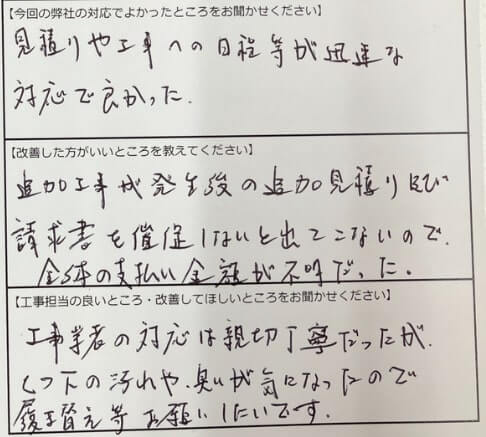 【今回の弊社の対応でよかったところをお聞かせください】
見積りや工事への日程等が迅速な
対応で良かった.
【改善した方がいいところを教えてください】
追加工事が発生後の追加見積り及び
請求書を催促しないと出てこないので.
全体の支払い金額が不明だった.
【工事担当の良いところ・改善してほしいところをお聞かせください】
工事業者の対応は親切丁寧だったが.
くつ下の汚れや.臭いが気になったので
履き替え等お願いしたいです.